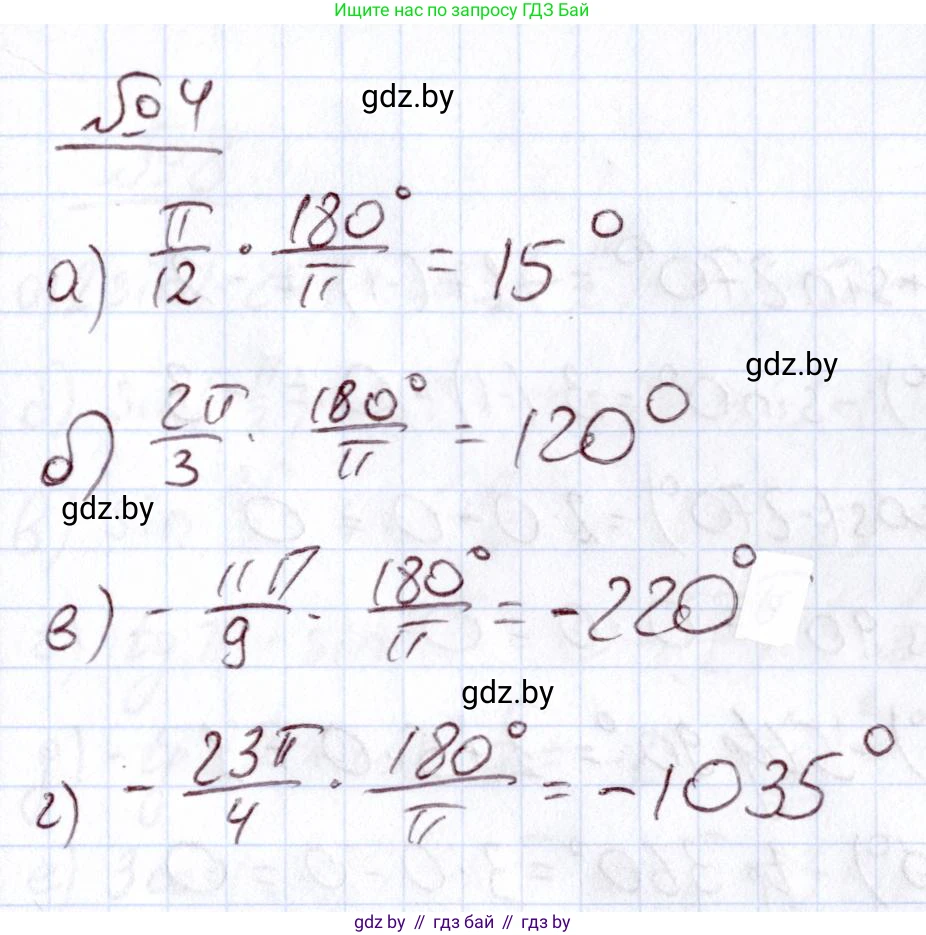 Ищите нас по запросу ГДЗ Бай
№ 4
gdz.by
а) π/12 · 180°/π = 15°
gdz.by
б) 2π/3 · 180°/π = 120°
gdz.by
в) - 11π/9 · 180°/π = -220°
gdz.by
г) - 23π/4 · 180°/π = -1035°
gdz.by // гдз бай // gdz.by